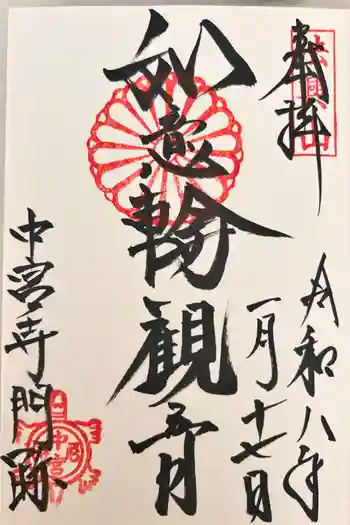 奉拝
令和八年
一月十七日
如意輪観音
中宮寺門跡